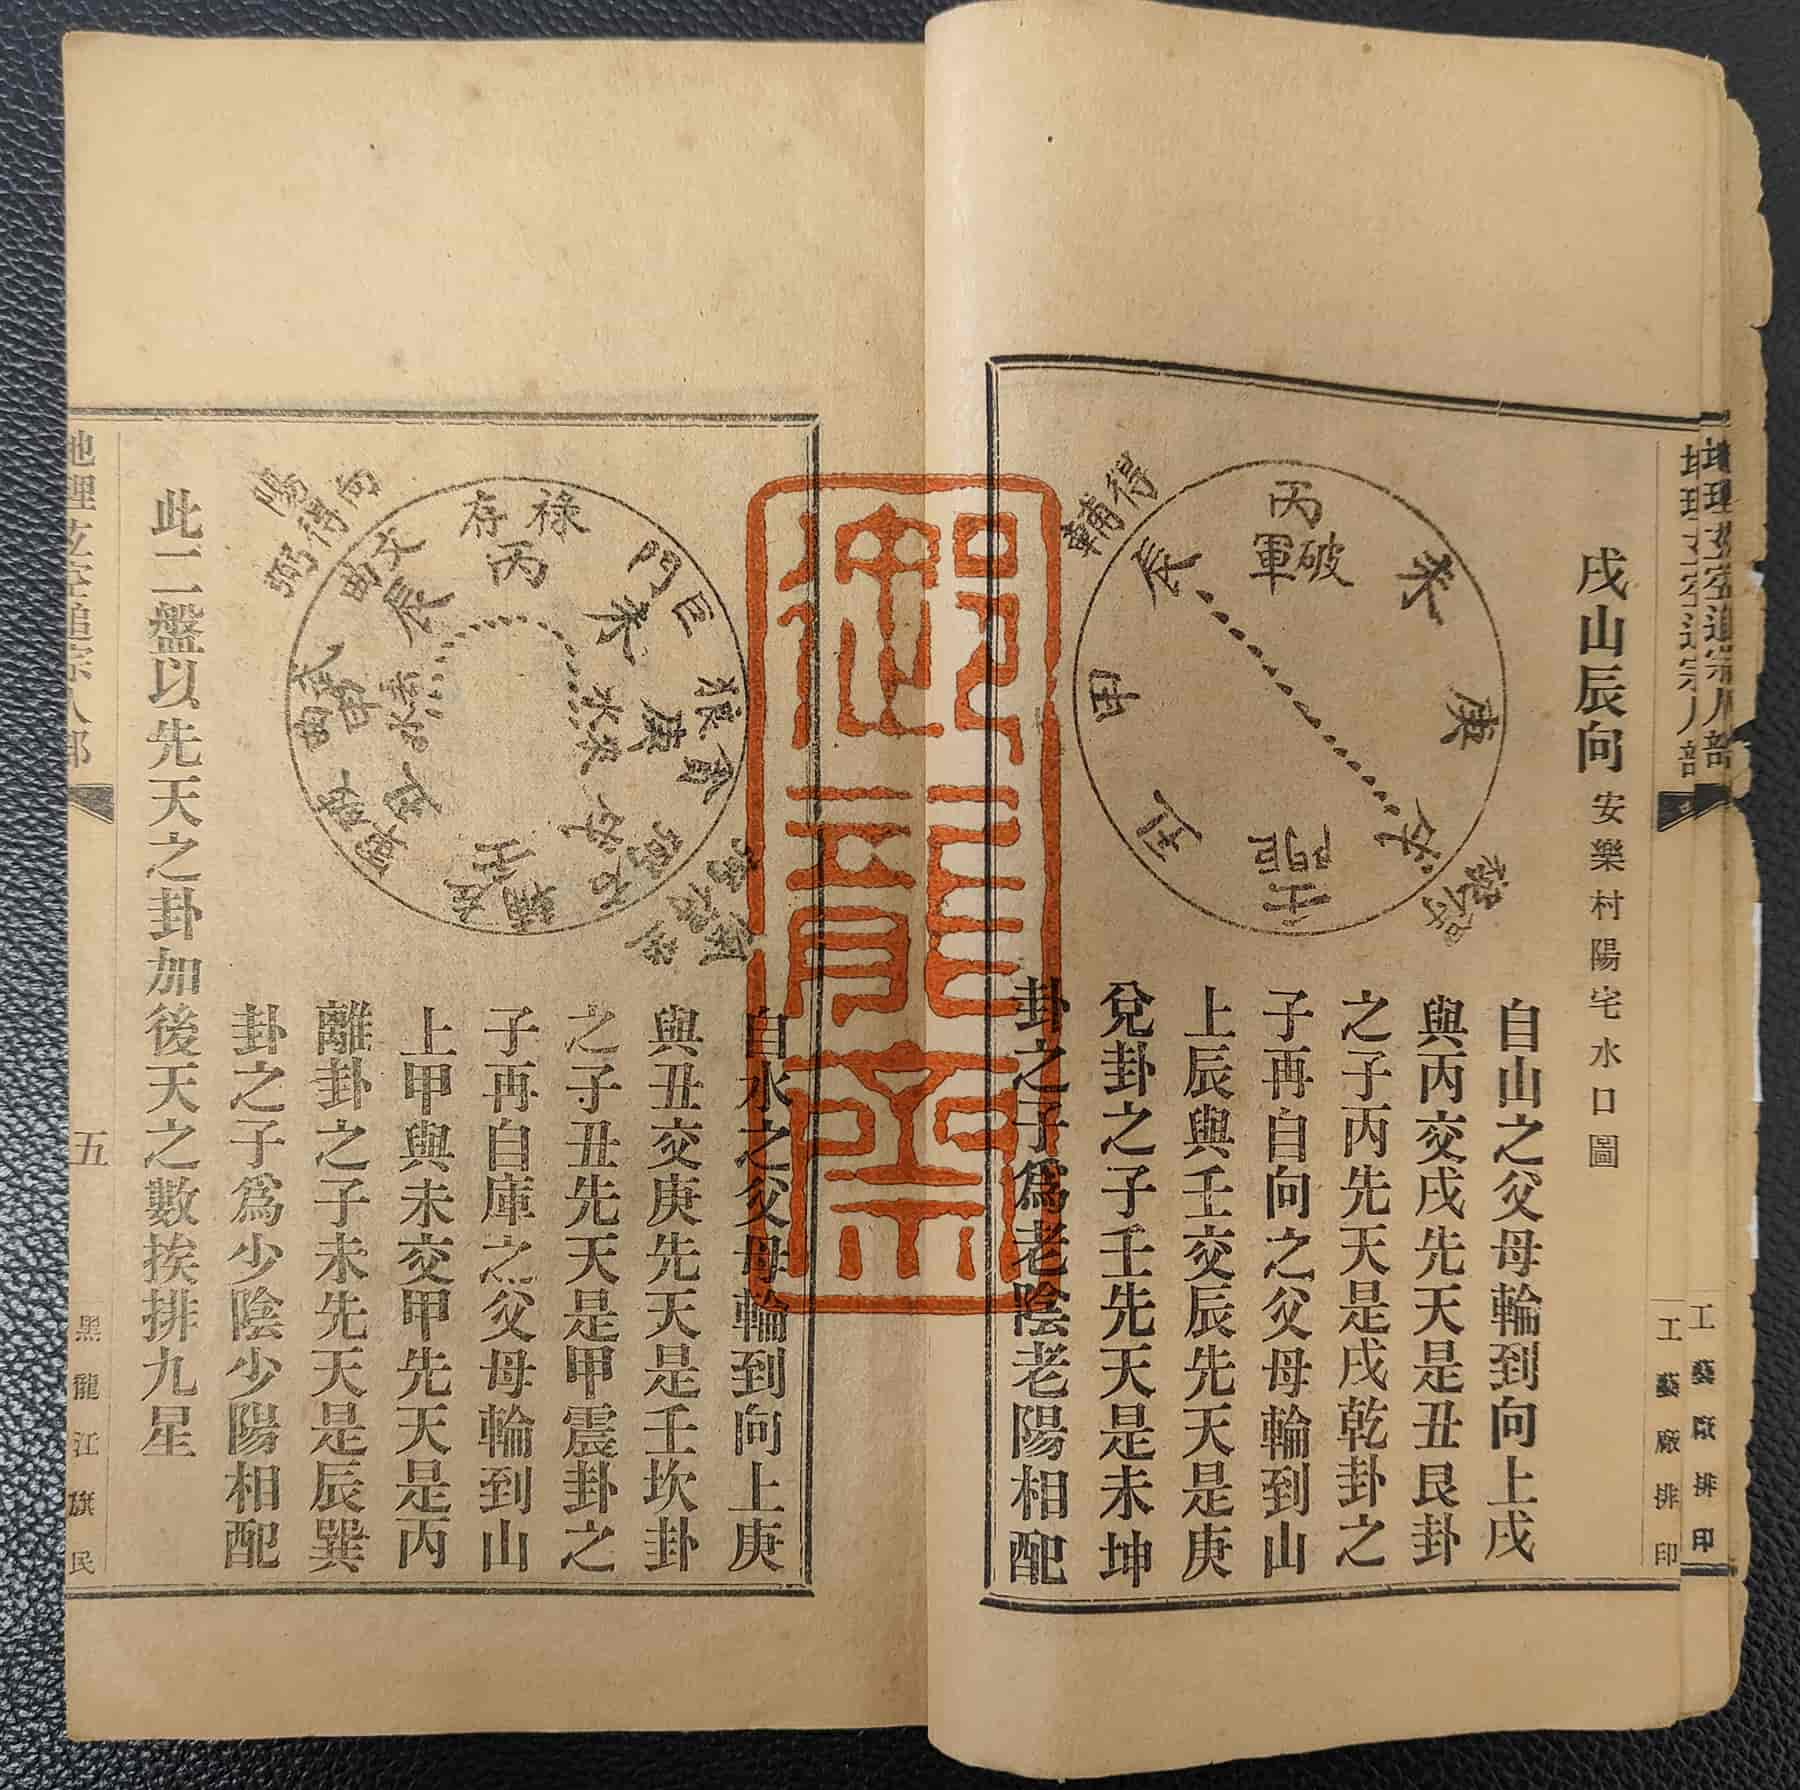 戌山辰向 安樂村陽宅水口圖
得輔
丙
破軍
未
辰
庚
甲
戌
丑
壬
自山之父母輪到向上戌
與丙交戌先天是丑艮卦
之子丙先天是戌乾卦之
子再自向之父母輪到山
上辰與壬交辰先天是庚
兌卦之子壬先天是未坤
卦之子爲老陰老陽相配
工藝廠排印
工藝廠排印
向得
弼
祿存
丙
巨門
未
文曲
辰
庚
水來
甲
武曲
丑
戌
壬
自水之父母輪到向上庚
與丑交庚先天是壬坎卦
之子丑先天是甲震卦之
子再自庫之父母輪到山
上甲與未交甲先天是丙
離卦之子未先天是辰巽
卦之子爲少陰少陽相配
此二盤以先天之卦加後天之數挨排九星
地理玄空追宗人部
五
黑龍江旗民